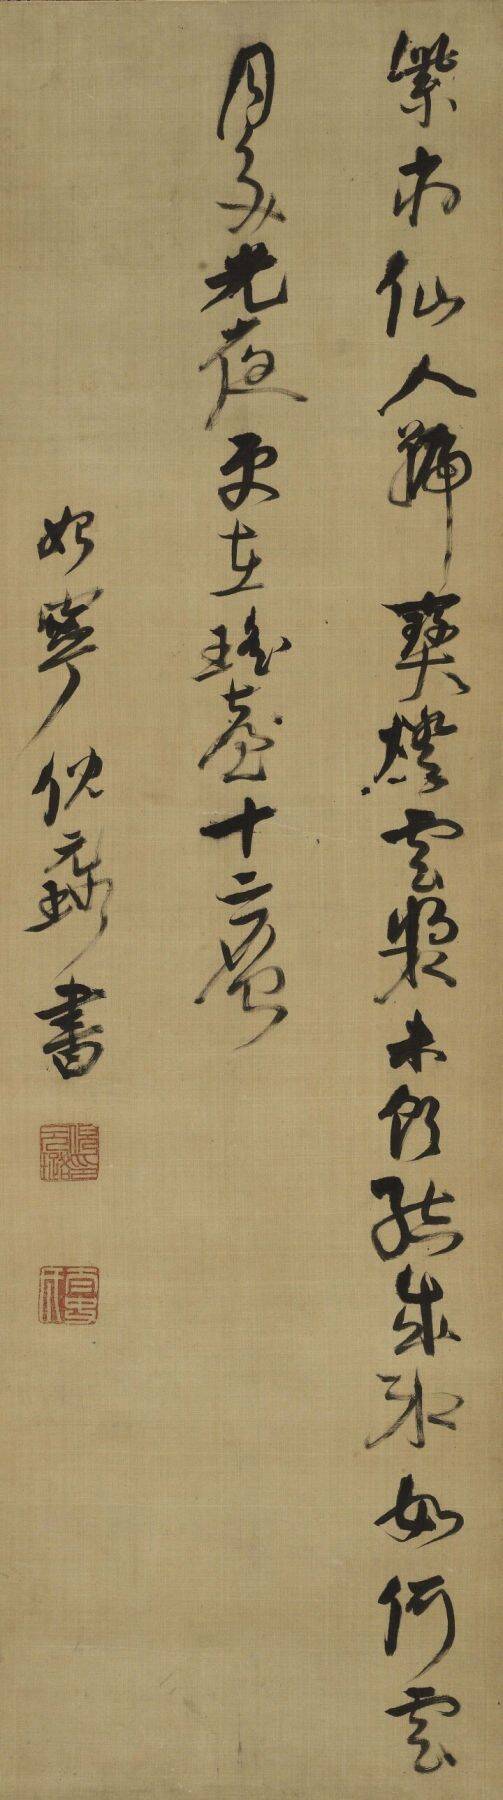 紫府仙人號寶燈雲漿未飲結成冰如何雲
月交光夜更在瑤臺十二層
始寧倪元璐書